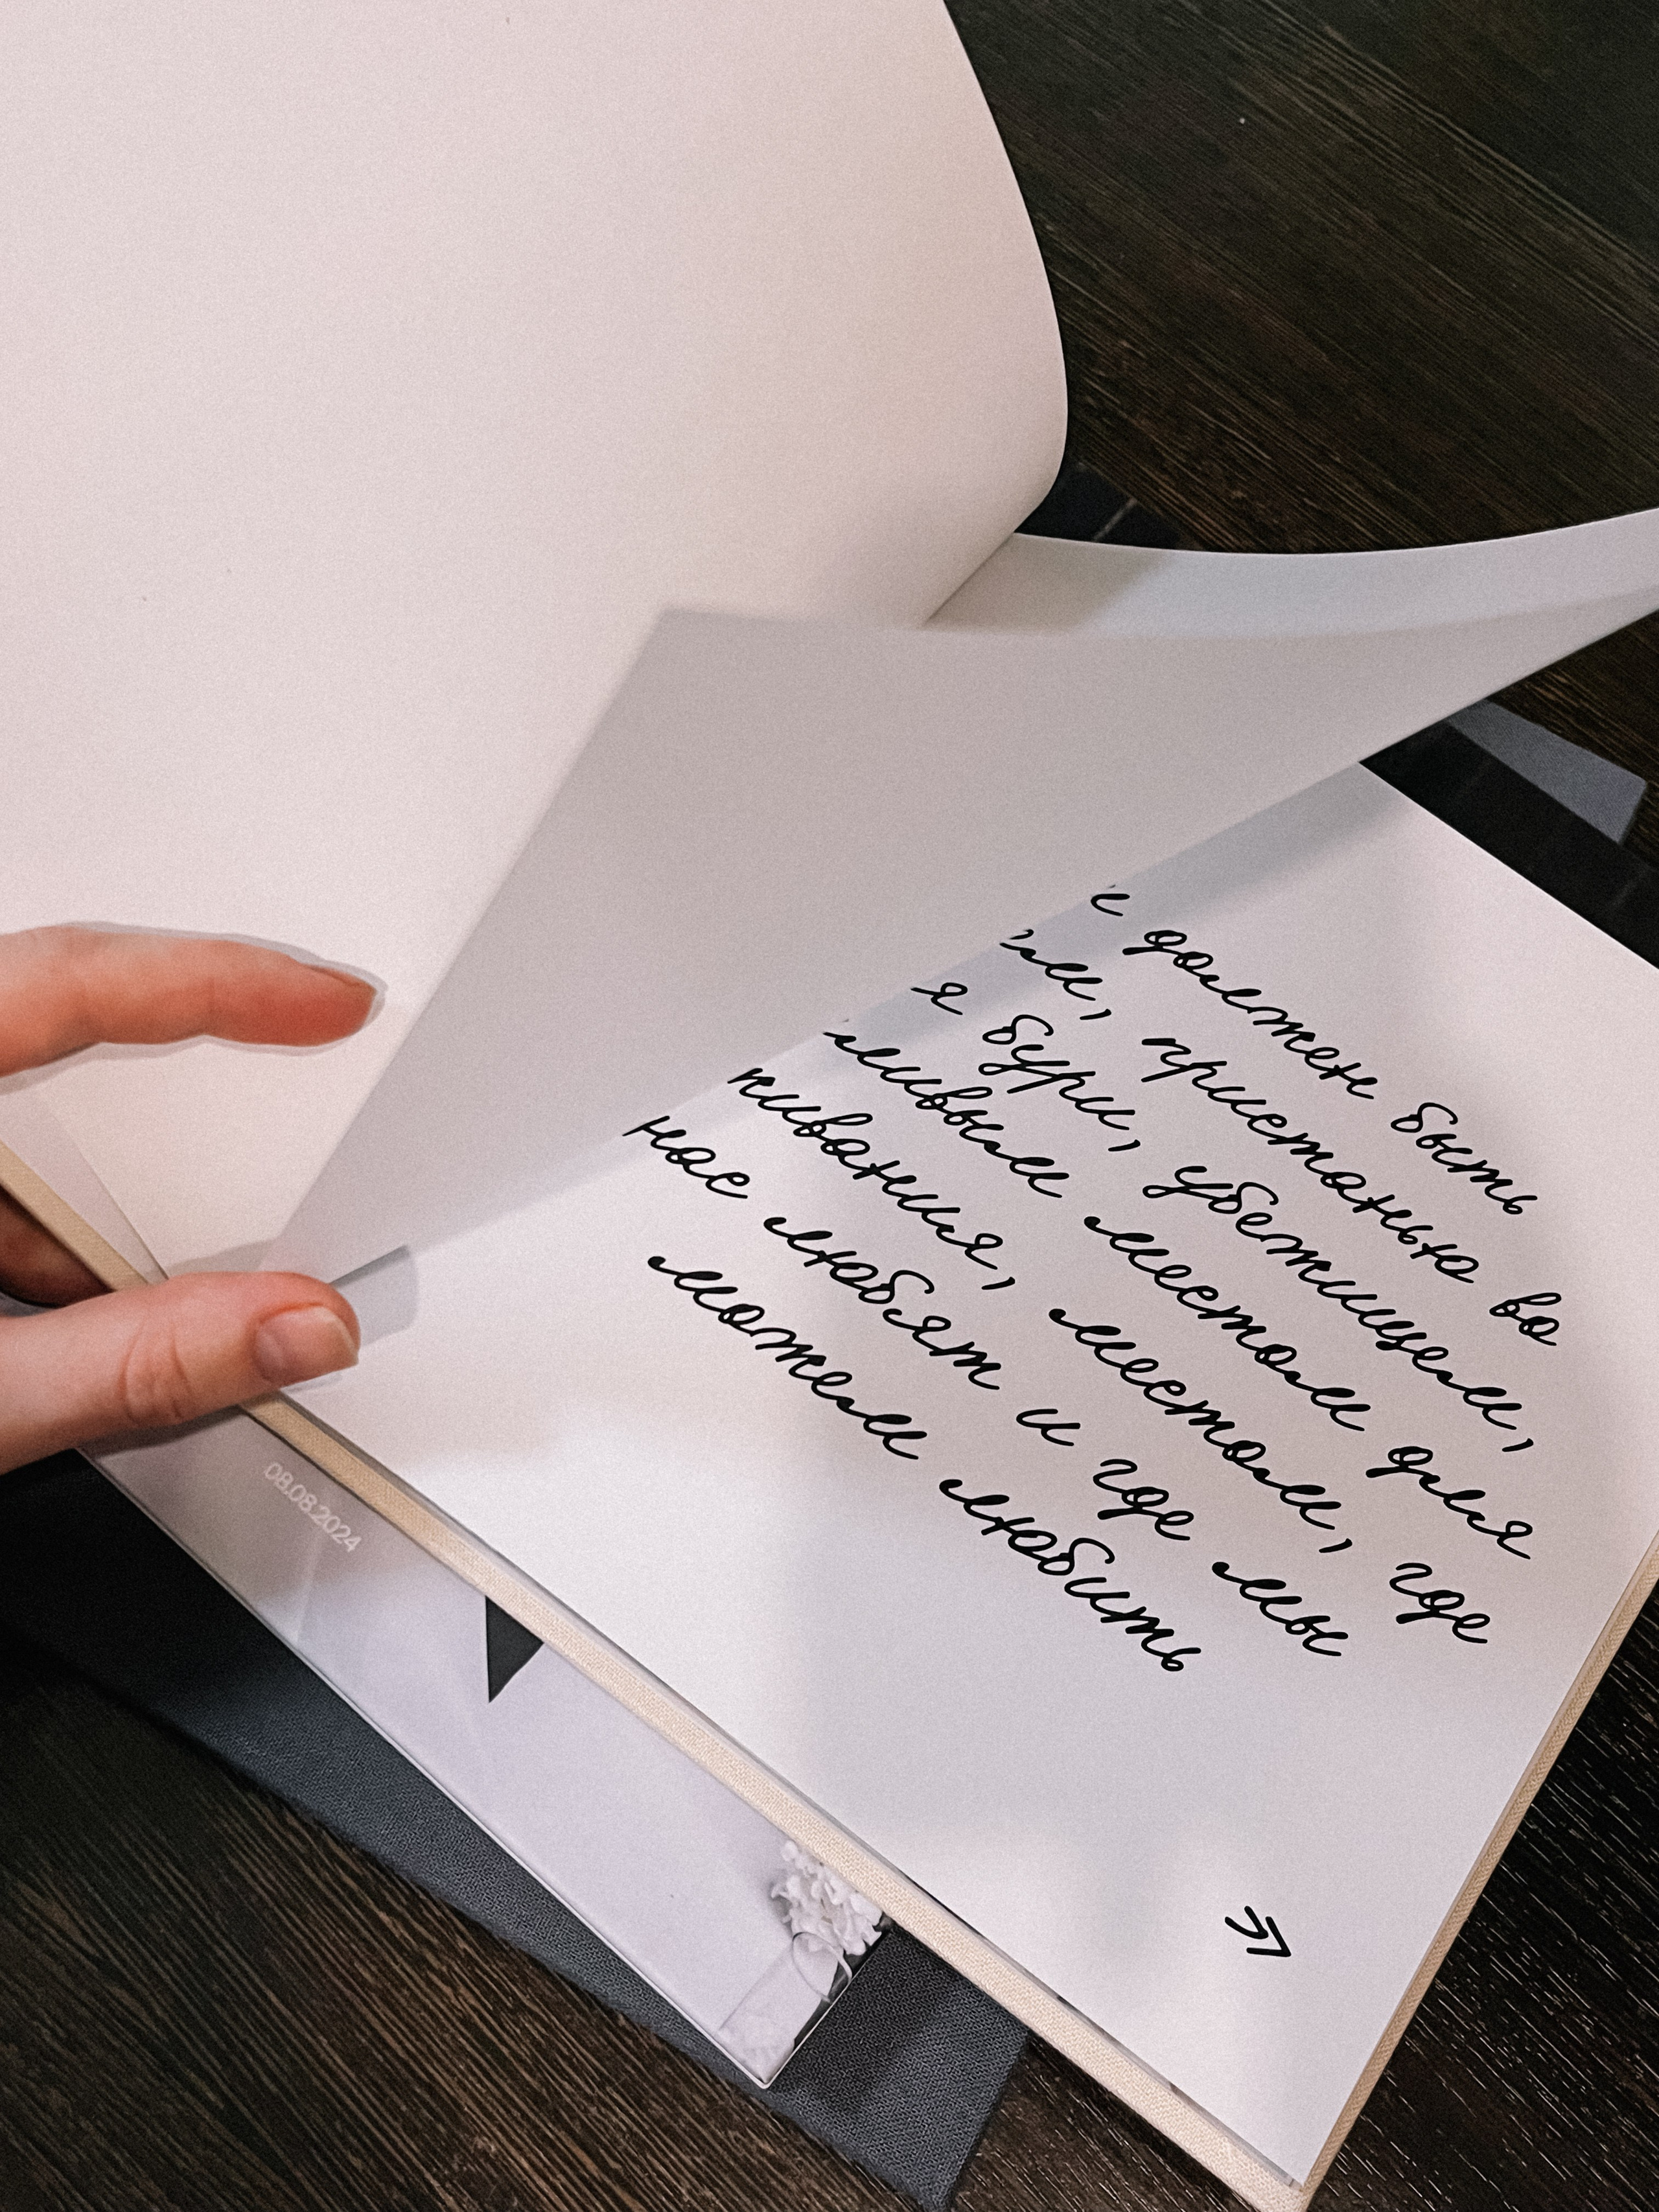 должен быть
ем, пристанью во
я бури, убежищем,
ливым местом для
живания, местом, где
нас любят и где мы
можем любить
08.08.2024